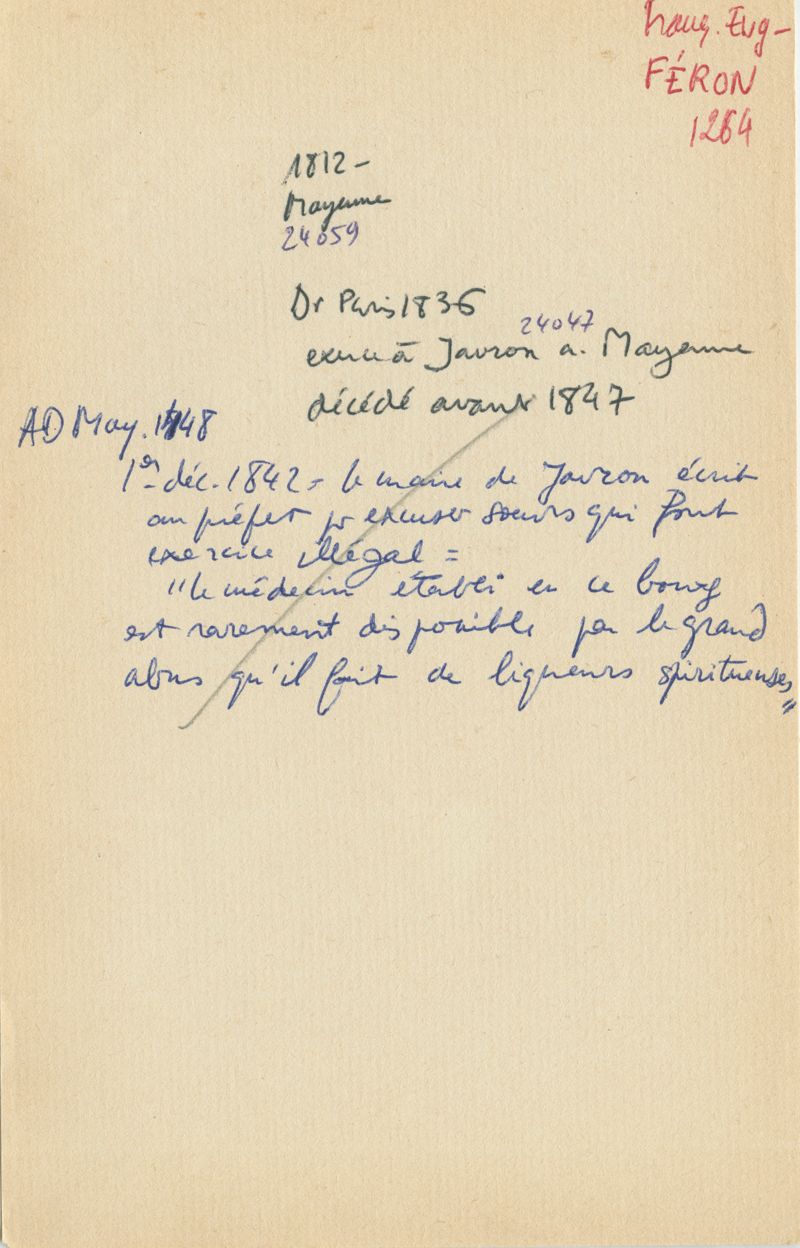 Franç. Eug-
FÉRON
1264
1812 -
Mayenne
24059
Dr Paris 1836
24047
exerce à Javron a. Mayenne
décédé avant 1847
AD May. 1448
1er déc. 1842 = le maire de Javron écrit
au préfet pr excuser soeurs qui font
exercice illégal =
"le médecin établi en ce bourg
est rarement disponible par le grand
abus qu'il fait de liqueurs spiritueuses"